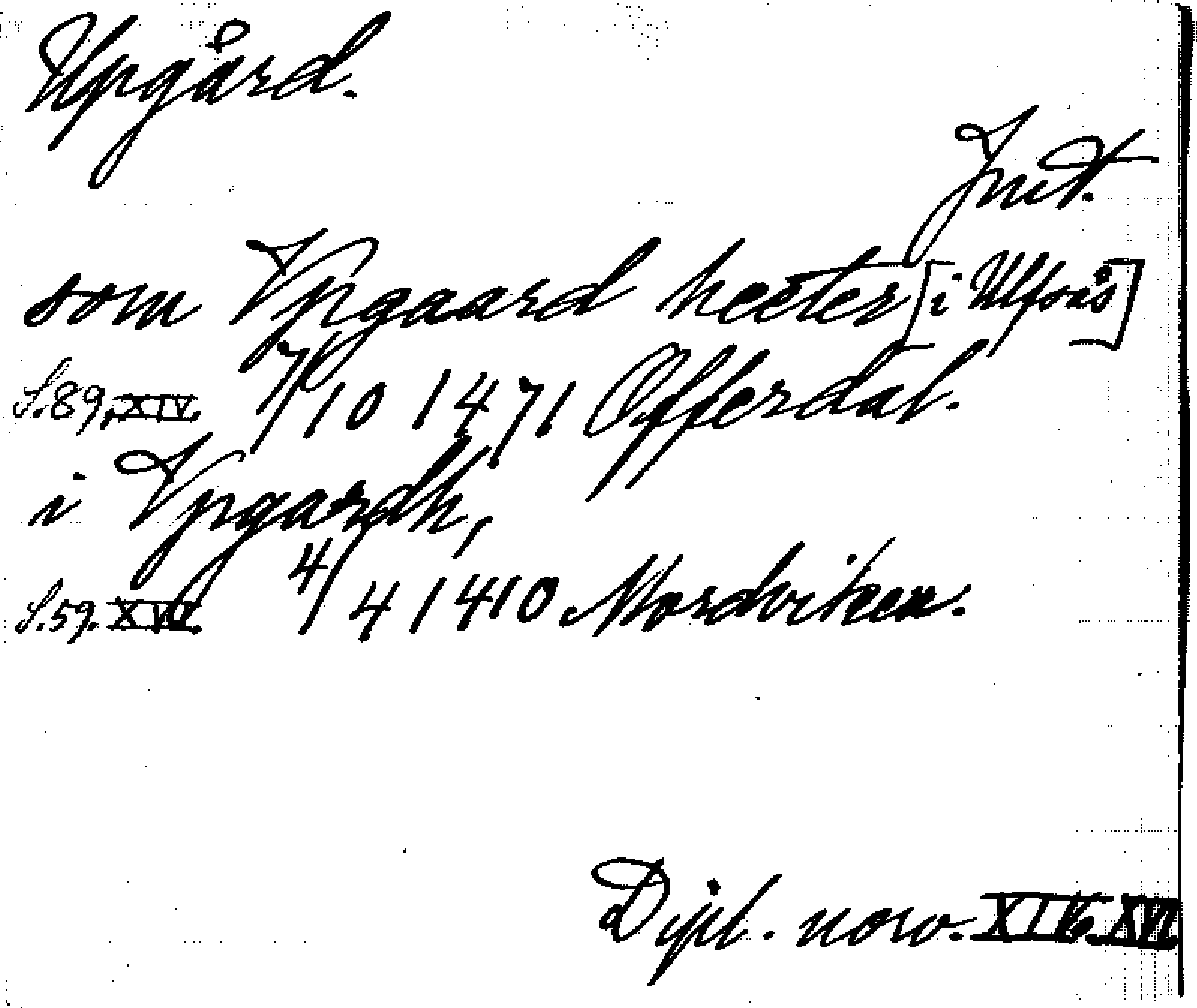 Upgård.
Jmt.
som Vpgaard heeter [i Ulfvås]
S.89, XIV. 7/10 1471 Offerdal.
i Vpgardh,
S.59. XVI. 4/4 1410 Mordviken.
Dipl. norv. XIV. XVI